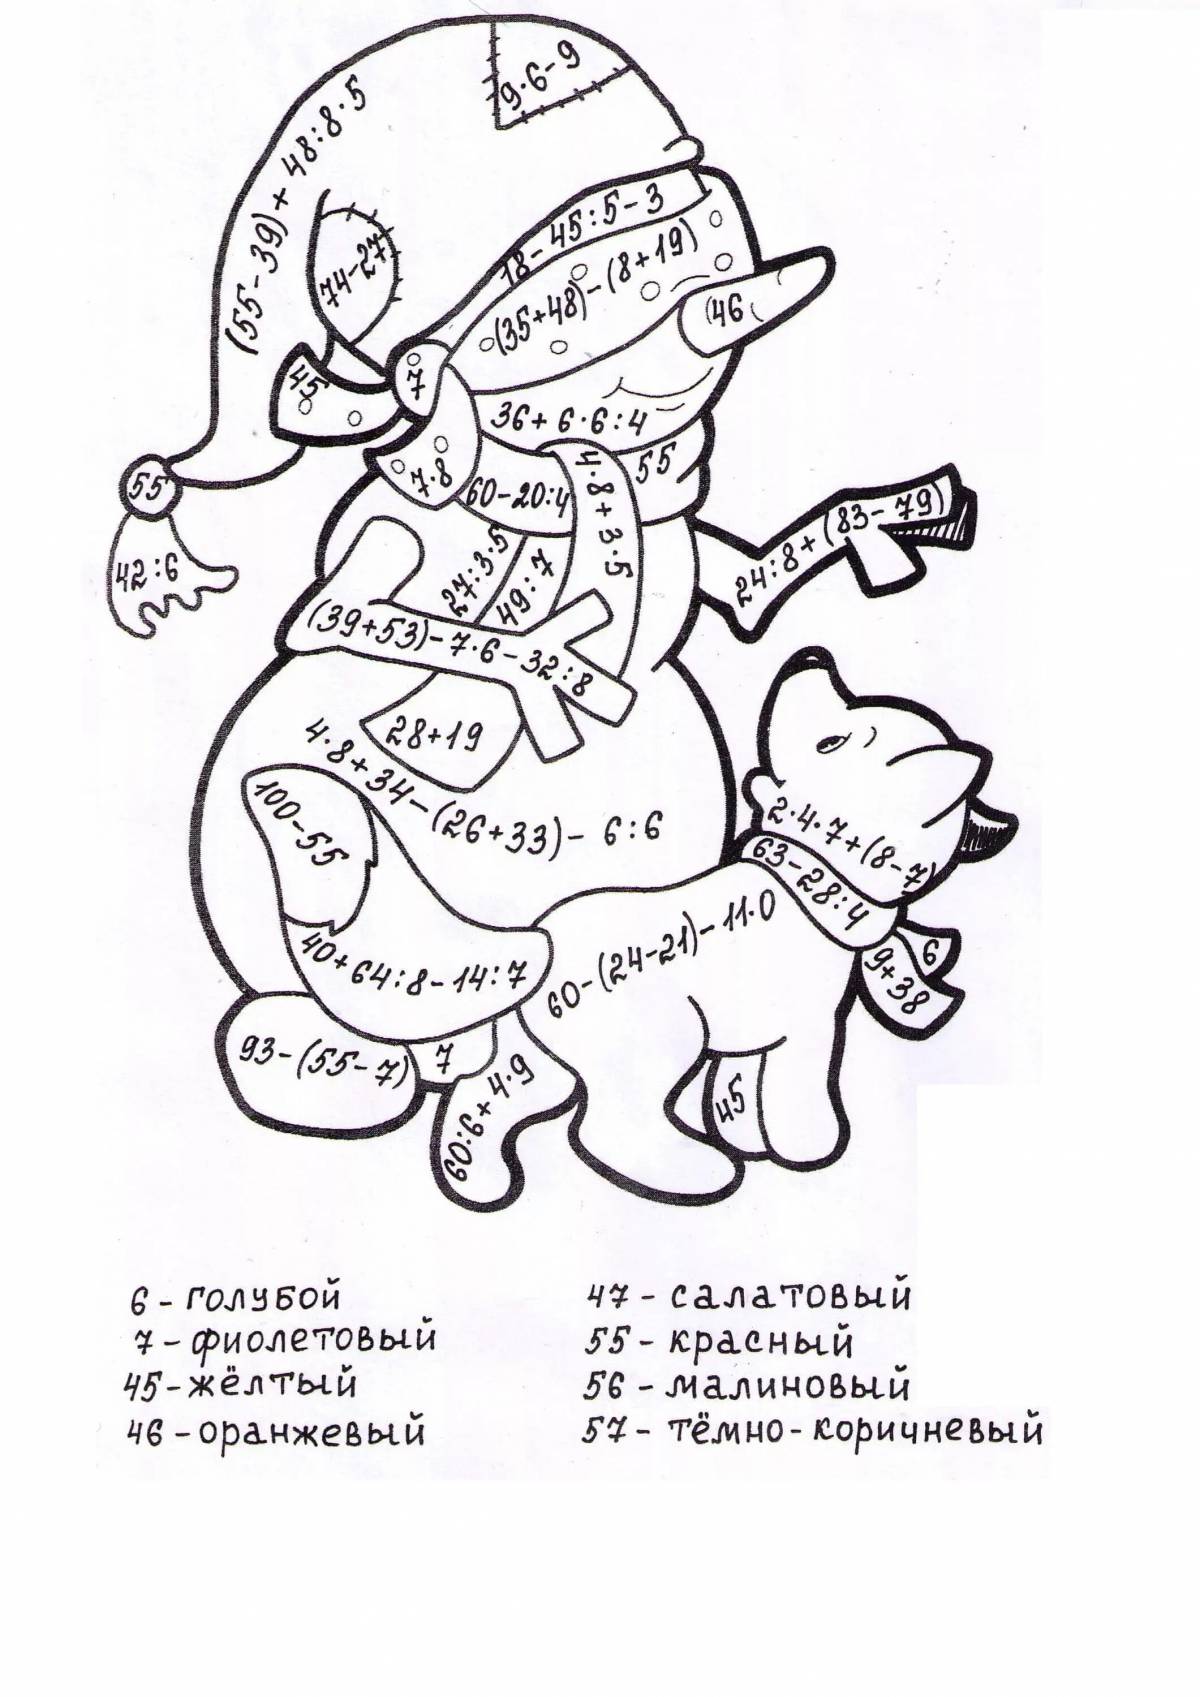 9·6-9
(55-39)+48:8·5
74-27
18-45:5-3
(35+48)-(8+19)
46
45
7
36+6·6:4
7·8
60-20:4
55
4·8+3·5
55
42:6
27:3·5
49:7
24:8+(83-79)
(39+53)-7·6-32:8
28+19
4·8+34-(26+33)-6:6
100-55
2·4·7+(8-7)
63-28:4
40+64:8-14:7
60-(24-21)-11·0
6
9+38
93-(55-7)
7
60:6+4·9
45
6-голубой
7-фиолетовый
45-жёлтый
46-оранжевый
47-салатовый
55-красный
56-малиновый
57-тёмно-коричневый